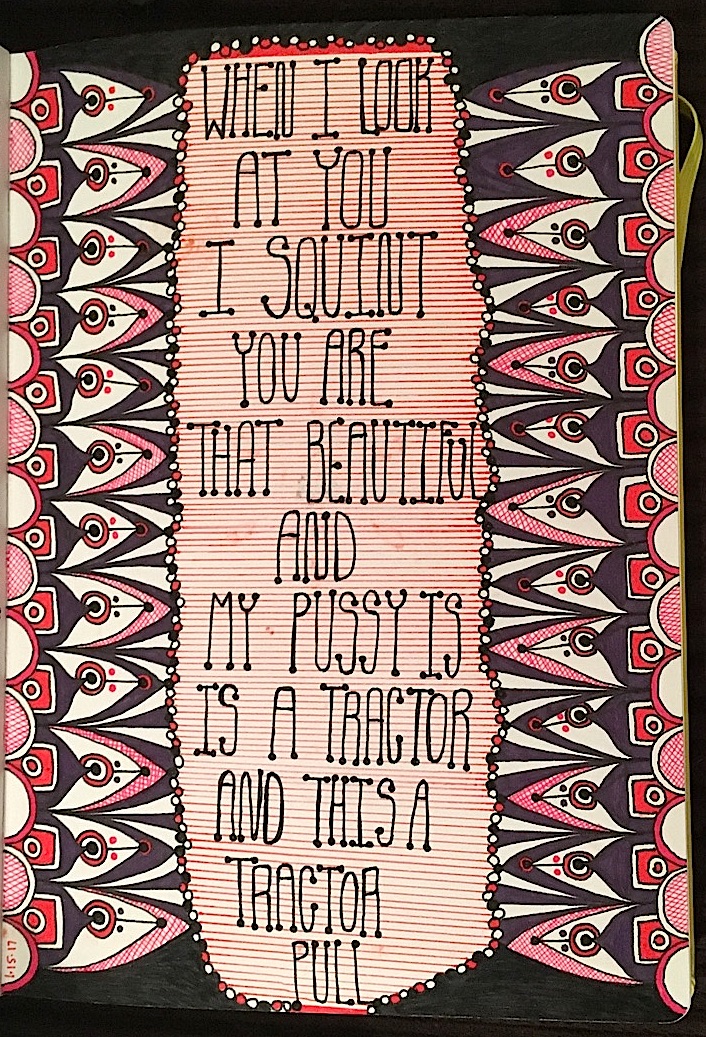 WHEN I LOOK
AT YOU
I SQUINT
YOU ARE
THAT BEAUTIFUL
AND
MY PUSSY IS
IS A TRACTOR
AND THIS A
TRACTOR
PULL
1·15·17